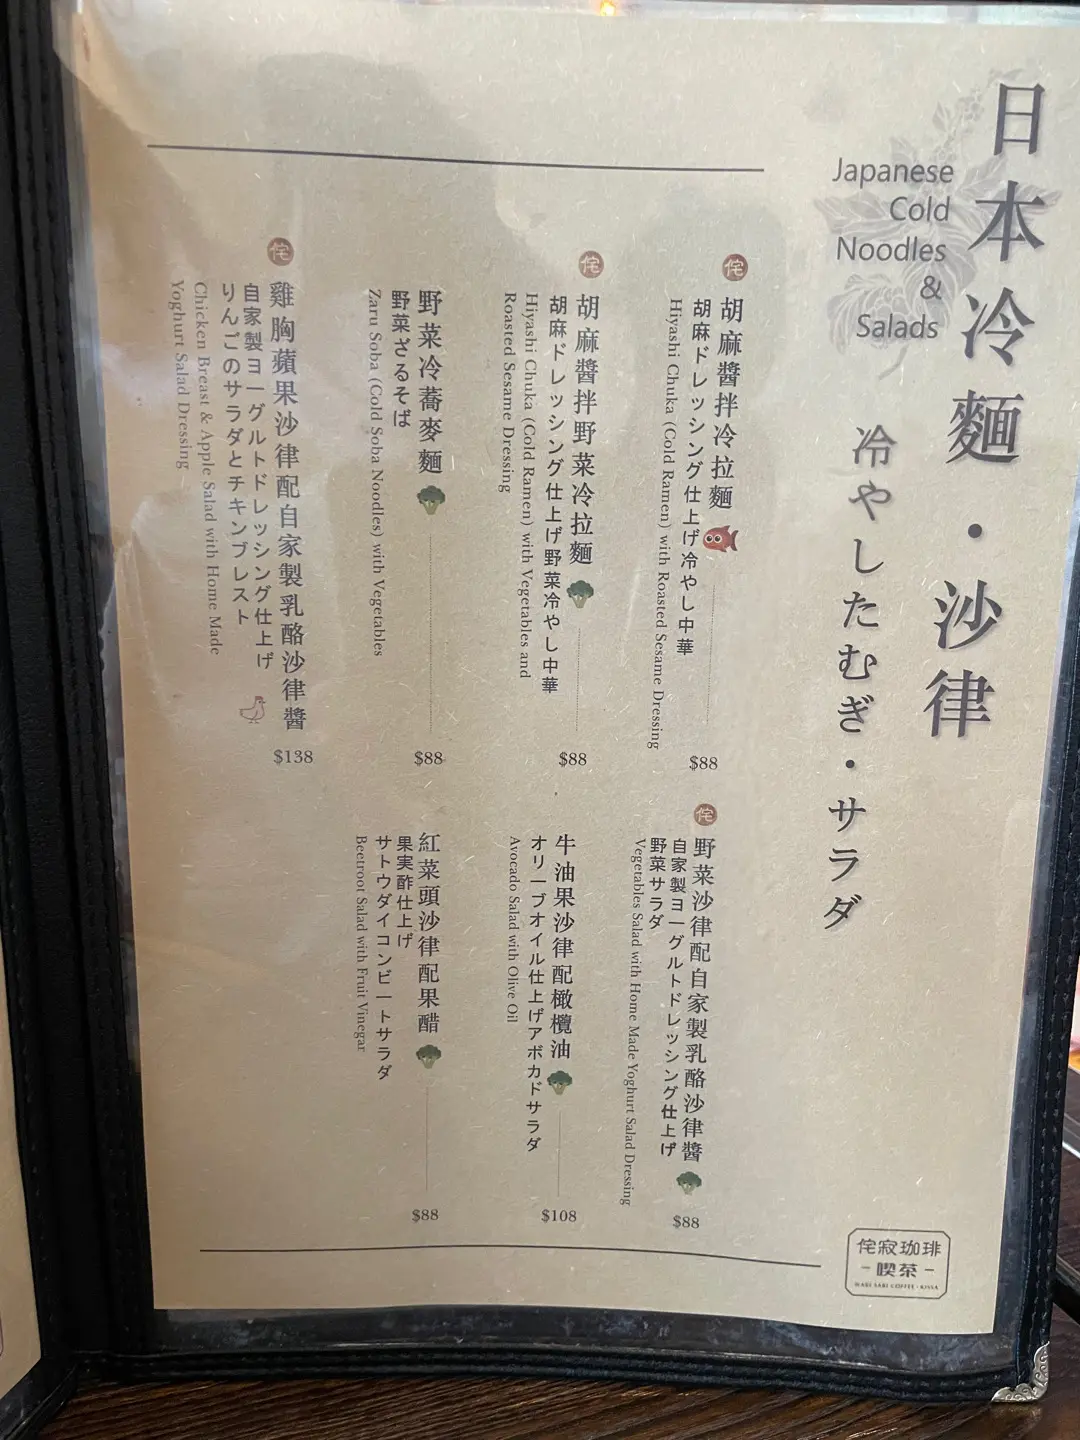 日本冷麵・沙律
Japanese
Cold
Noodles
&
Salads
冷やしたむぎ・サラダ
侘
胡麻醬拌冷拉麵
$88
胡麻ドレッシング仕上げ冷やし中華
Hiyashi Chuka (Cold Ramen) with Roasted Sesame Dressing
侘
胡麻醬拌野菜冷拉麵
$88
胡麻ドレッシング仕上げ野菜冷やし中華
Hiyashi Chuka (Cold Ramen) with Vegetables and
Roasted Sesame Dressing
野菜冷蕎麥麵
$88
野菜ざるそば
Zaru Soba (Cold Soba Noodles) with Vegetables
侘
雞胸蘋果沙律配自家製乳酪沙律醬
$138
自家製ヨーグルトドレッシング仕上げ
りんごのサラダとチキンブレスト
Chicken Breast & Apple Salad with Home Made
Yoghurt Salad Dressing
侘
野菜沙律配自家製乳酪沙律醬
$88
自家製ヨーグルトドレッシング仕上げ
野菜サラダ
Vegetables Salad with Home Made Yoghurt Salad Dressing
牛油果沙律配橄欖油
$108
オリーブオイル仕上げアボカドサラダ
Avocado Salad with Olive Oil
紅菜頭沙律配果醋
$88
果実酢仕上げ
サトウダイコンビートサラダ
Beetroot Salad with Fruit Vinegar
侘寂珈琲
-喫茶-
WABI SABI COFFEE・KISSA